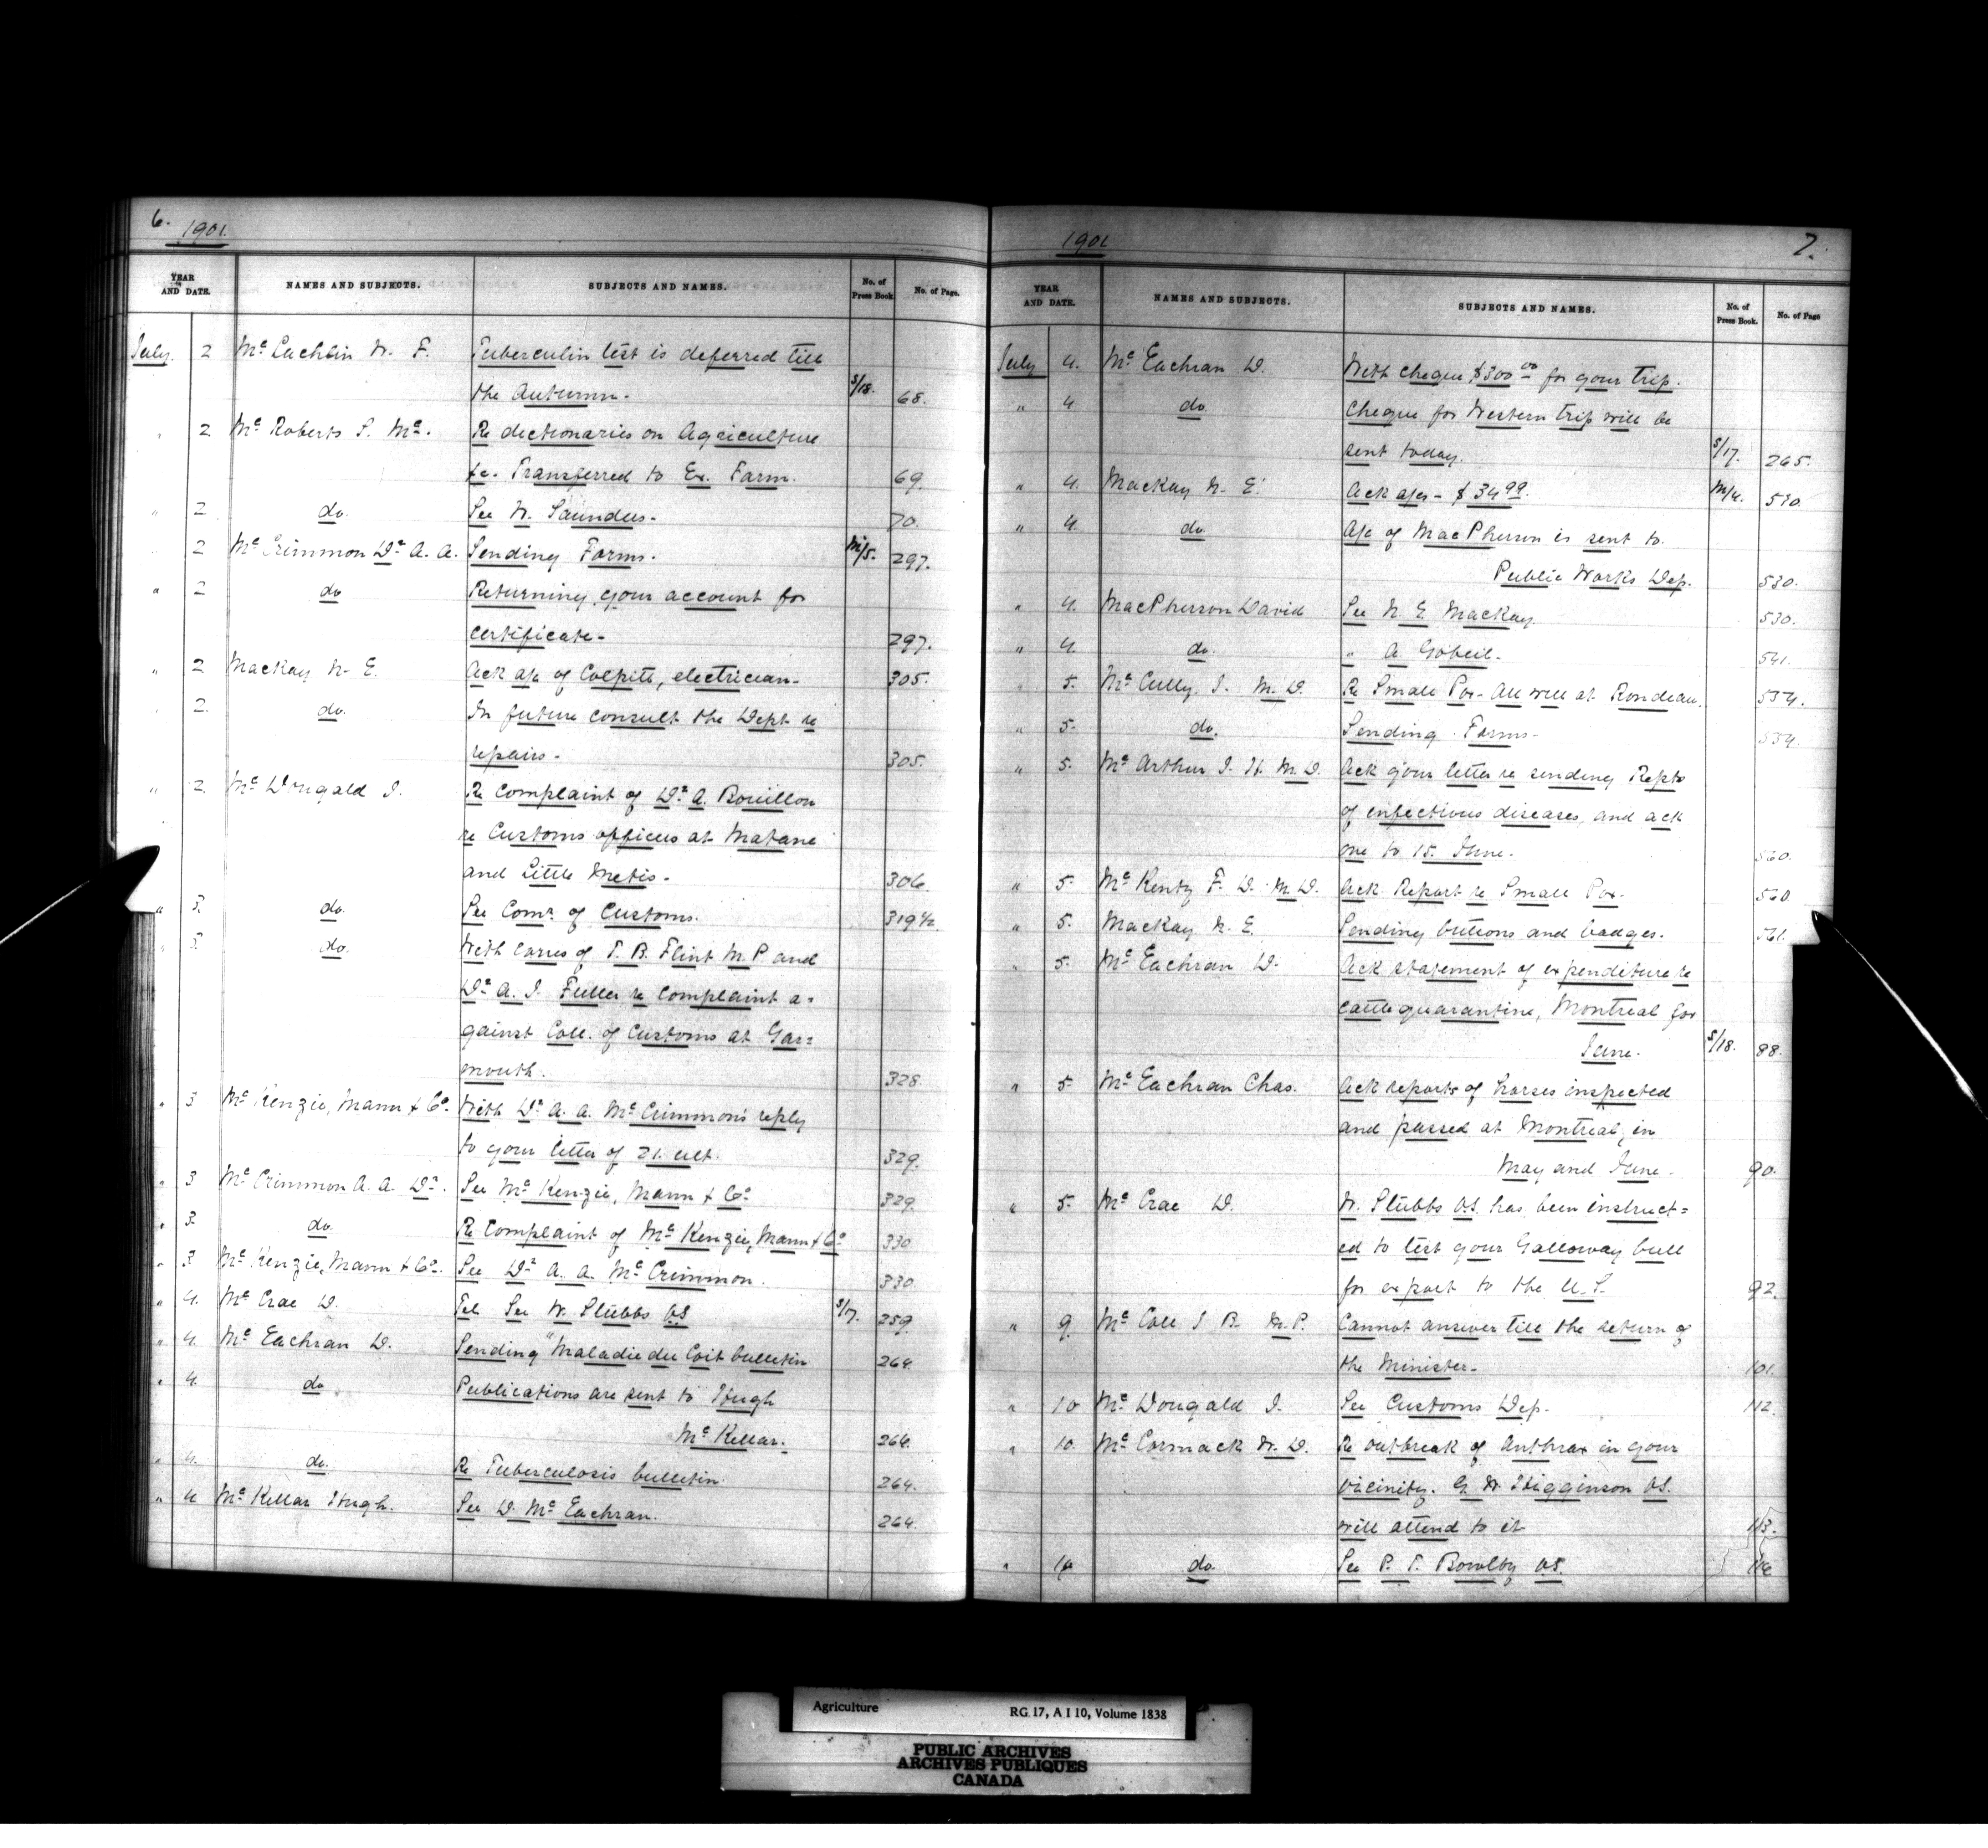 6. 1901.
YEAR AND DATE. NAMES AND SUBJECTS. SUBJECTS AND NAMES. No. of Press Book No. of Page.
July. 2 Mc Lachlin W. F. Tuberculin test is deferred till
the Autumn. S/18. 68.
" 2 Mc Roberts S. Mc. Re dictionaries on Agriculture
&c. Transferred to Ex. Farm. 69.
" 2 do. See W. Saunders. 70.
" 2 Mc Crimmon Dr A. A. Sending Forms. M/5. 297.
" 2 do Returning your account for
certificate. 297.
" 2 Mackay N. E. Ack a/c of Colpitts, electrician. 305.
" 2. do. In future consult the Dept re
repairs. 305.
" 2. Mc Dougald J. Re complaint of Dr A. Bouillon
re Customs officers at Matane
and Little Metis. 306.
" 3. do. See Comr. of Customs. 319½.
" 3. do. With corres of T. B. Flint M. P. and
Dr A. J. Fuller re complaint a=
gainst Coll. of Customs at Yar=
mouth. 328.
" 3 Mc Kenzie, Mann & Co. With Dr A. A. Mc Crimmon's reply
to your letter of 21. ult. 329.
" 3 Mc Crimmon A. A. Dr. See Mc Kenzie, Mann & Co 329.
" 3. do. Re complaint of Mc Kenzie, Mann & Co 330
" 3 Mc Kenzie, Mann & Co. See Dr A. A. Mc Crimmon. 330.
" 4. Mc Crae D. Tel See W. Stubbs V.S S/17. 259.
" 4. Mc Eachran D. Sending "Maladie du Coit bulletin 264
" 4. do Publications are sent to Hugh
Mc Kellar. 264.
" 4. do. Re Tuberculosis bulletin. 264.
" 4 Mc Kellar Hugh. See D. Mc Eachran. 264.
1901 7.
YEAR AND DATE. NAMES AND SUBJECTS. SUBJECTS AND NAMES. No. of Press Book. No. of Page
July 4. Mc Eachran D. With cheque $300 00 for your trip.
" 4 do. Cheque for Western trip will be
sent today. S/17. 265.
" 4. Mackay N. E. Ack a/cs - $34 99. M/4. 530.
" 4. do. A/c of MacPherson is sent to
Public Works Dep. 530.
" 4. MacPherson David See N. E. Mackay 530.
" 4. do. " A. Gobeil. 541.
" 5. Mc Cully J. M. D. Re Small Pox. All well at Rondeau. 554.
" 5. do. Sending Forms. 554.
" 5. Mc Arthur J. H. M. D. Ack your letter re sending Repts
of infectious diseases, and ack
one to 15. June. 560.
" 5. Mc Kenty F. D. M. D. Ack Report re Small Pox. 560.
" 5. Mackay N. E. Sending buttons and badges. 561.
" 5. Mc Eachran D. Ack statement of expenditure re
cattle quarantine, Montreal for
June. S/18. 88.
" 5. Mc Eachran Chas. Ack reports of horses inspected
and passed at Montreal, in
May and June. 90.
" 5. Mc Crae D. W. Stubbs V.S. has been instruct=
ed to test your Galloway bull
for export to the U. S. 92.
" 9. Mc Coll J. B. M. P. Cannot answer till the return of
the Minister. 101.
" 10 Mc Dougald J. See Customs Dep. 112.
" 10. Mc Cormack W. D. Re outbreak of Anthrax in your
vicinity. G. W. Higginson V.S.
will attend to it 113.
" 10 do. See P. T. Bowlby V.S. 116
Agriculture RG 17, A I 10, Volume 1838
PUBLIC ARCHIVES
ARCHIVES PUBLIQUES
CANADA